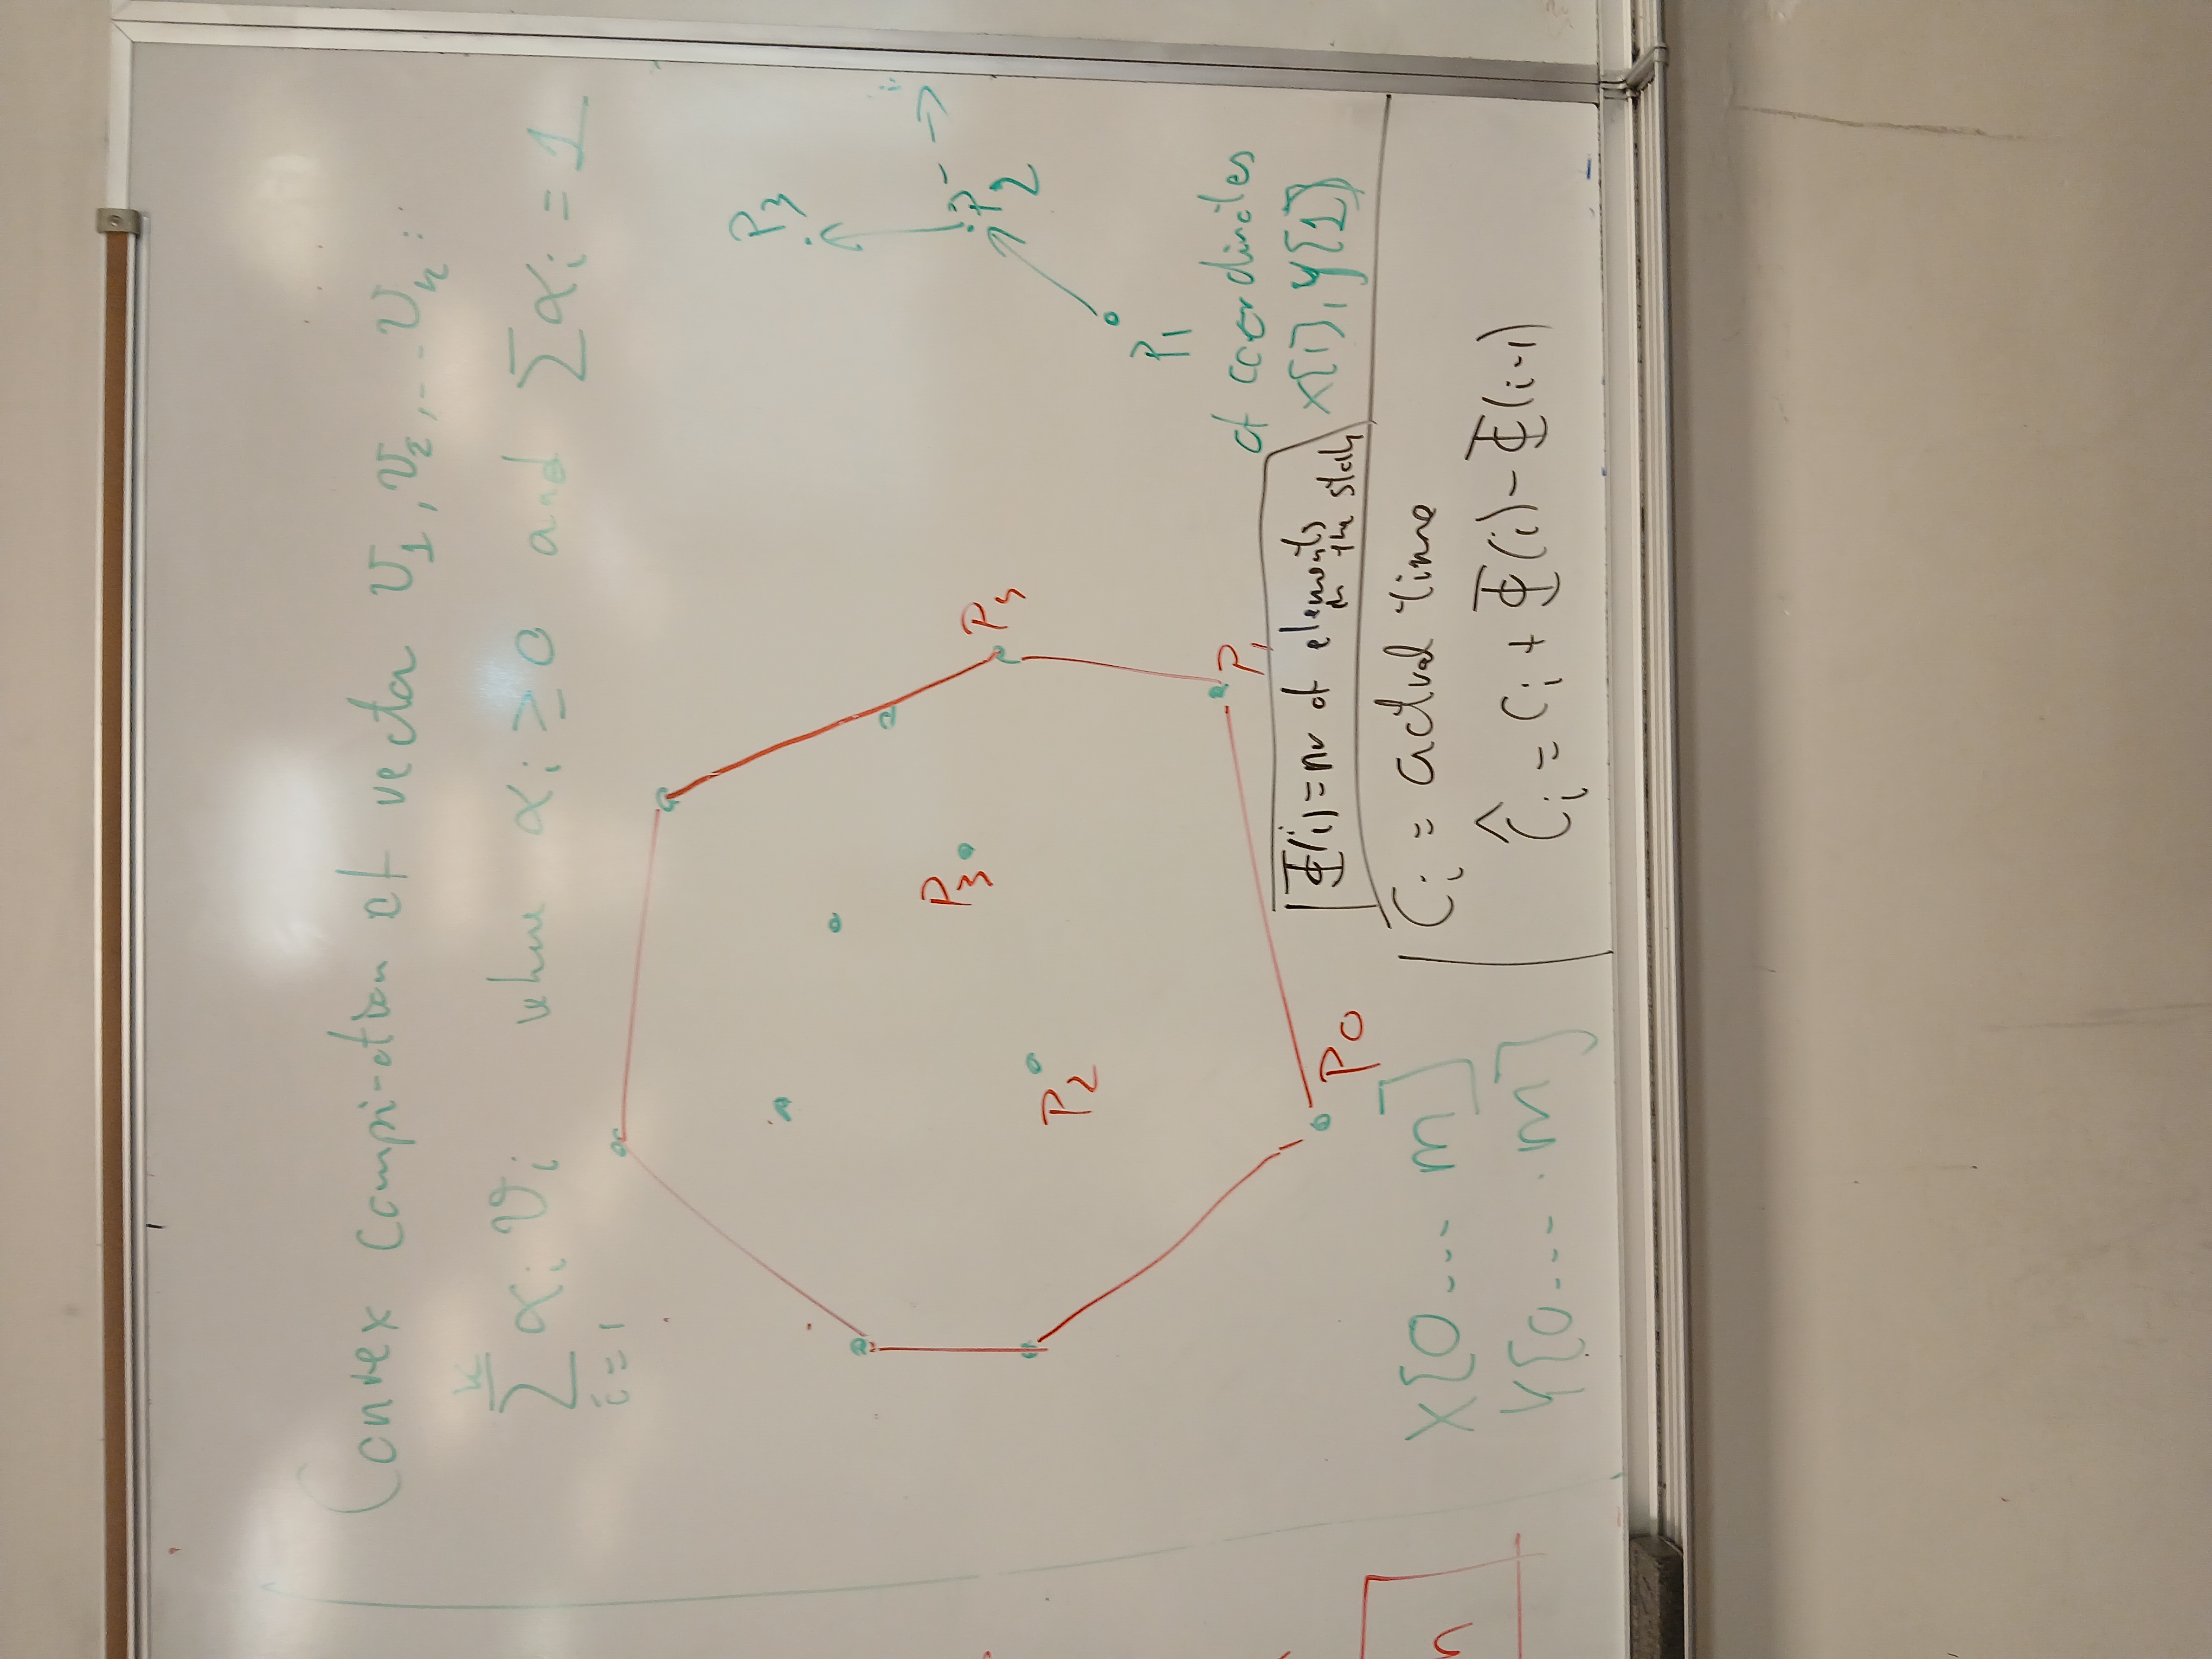 Convex compi-ation of vecta v₁, v₂, ... vₖ :
k
∑ αᵢ vᵢ where αᵢ ≥ 0 and ∑ αᵢ = 1
i = 1
P₃
P₃
P₅
P₂
P₂
P₁
P₁
of coordinates
P0
Φ(i) = nr of elements in the stack
X[1], Y[1]
X[0 ... m]
Y[0 .... m]
Cᵢ = actual time
Ĉᵢ = Cᵢ + Φ(i) - Φ(i-1)
n